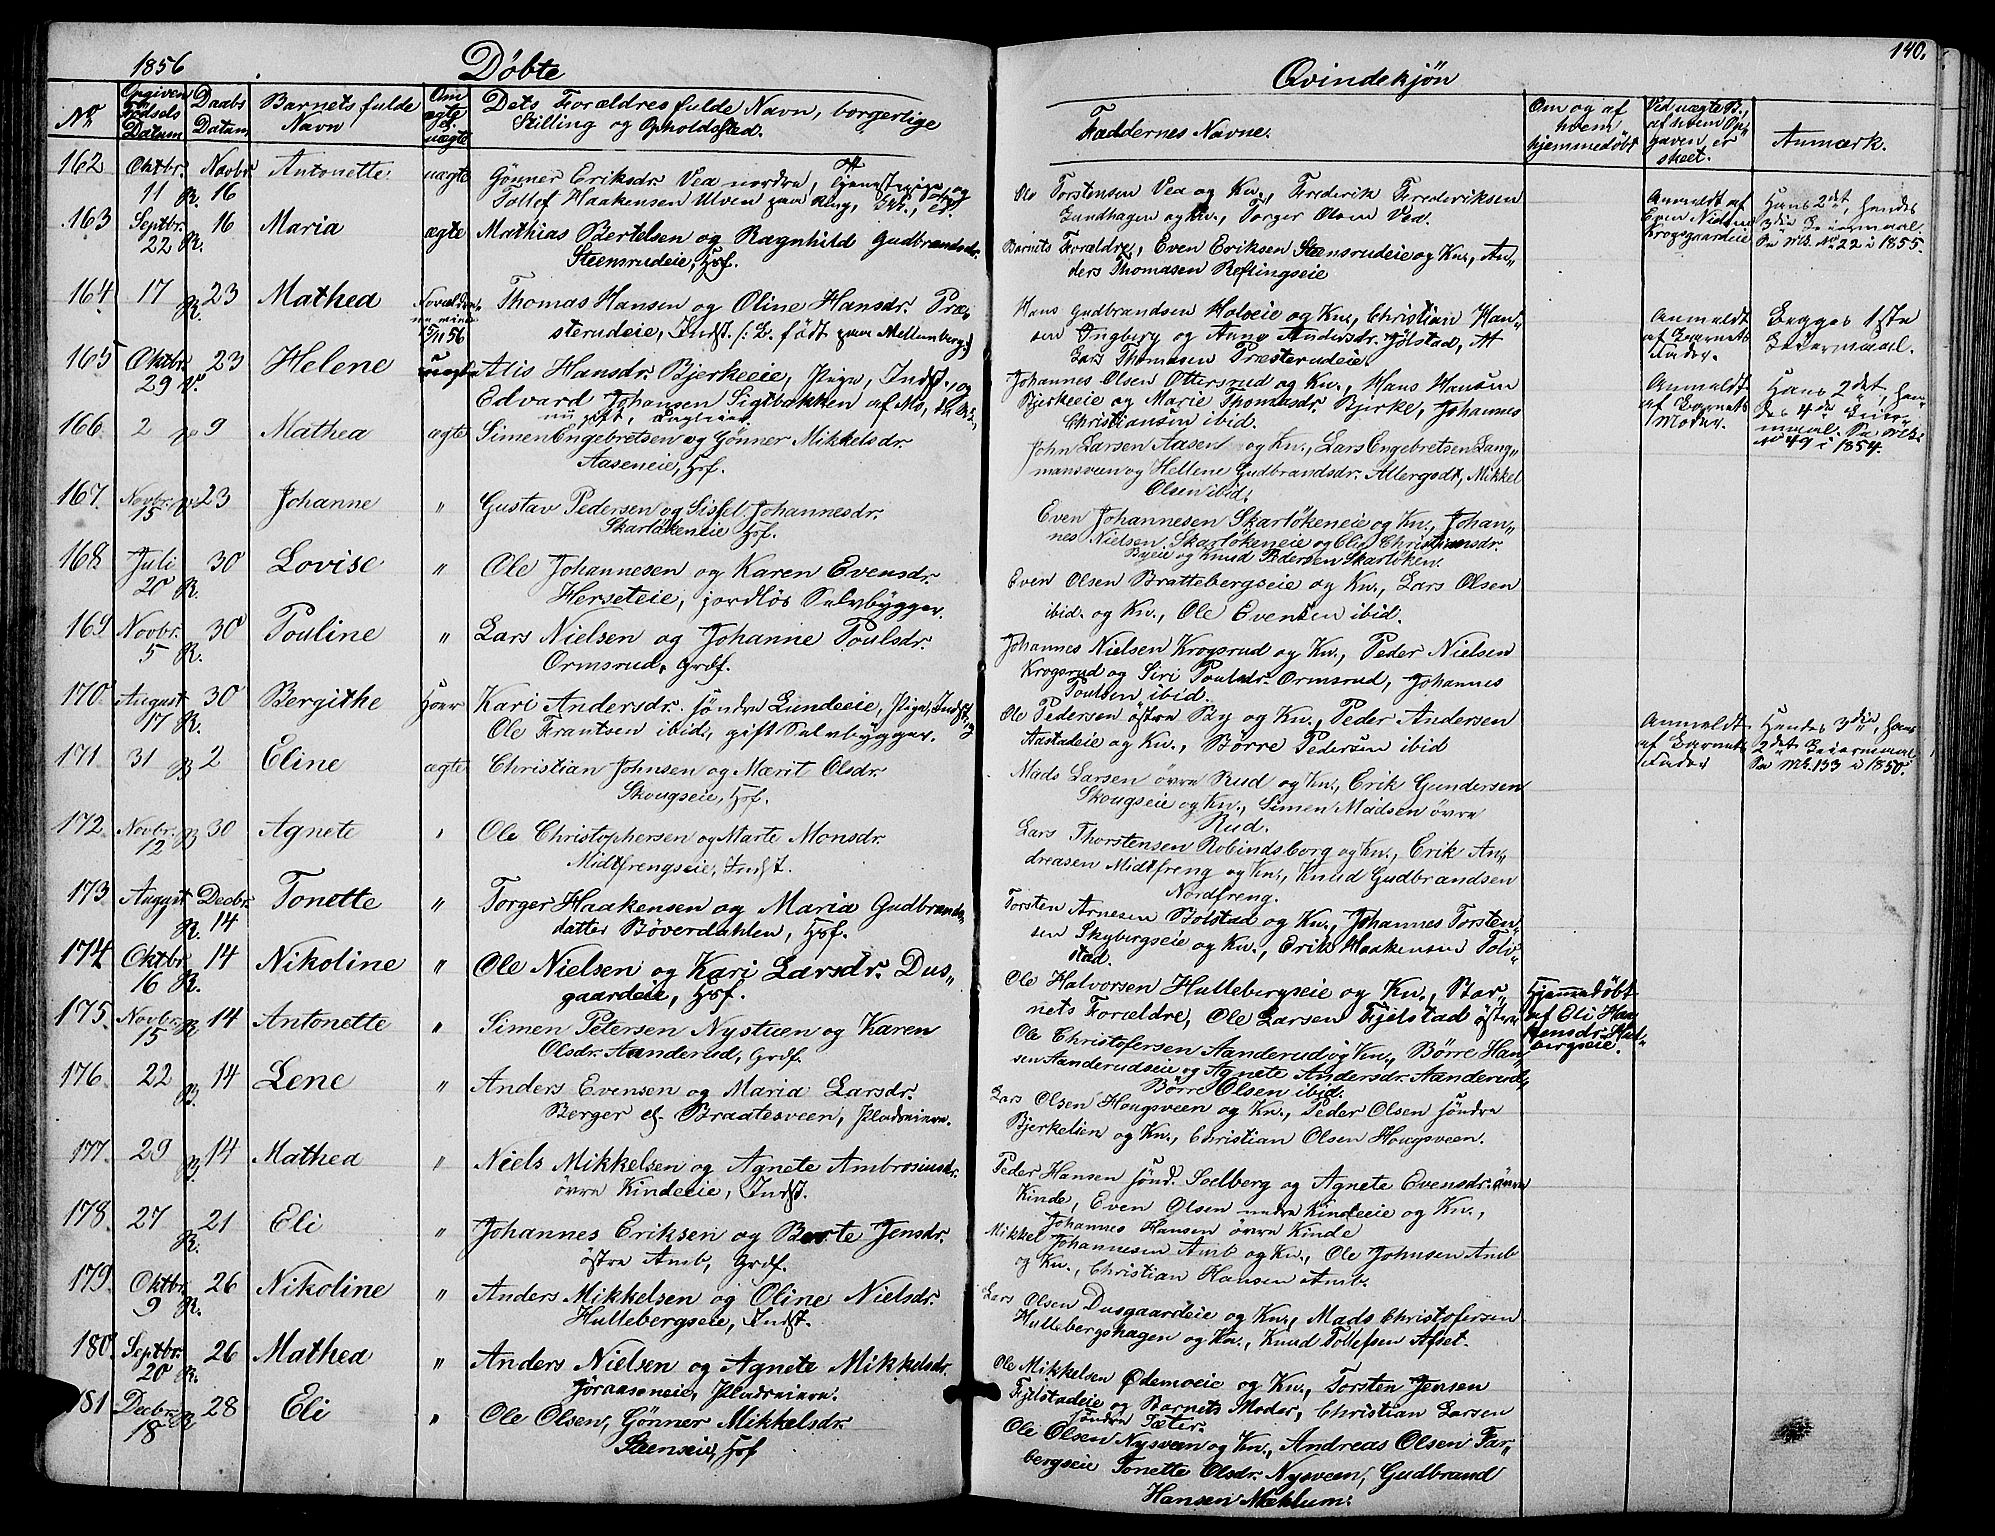 1856
Døbte
Qvindekjøn
140.
No
Opgiven Fødsels Datum
Daabs Datum
Barnets fulde Navn
Om ægte el. uægte
Dets Forældres fulde Navn, borgerlige Stilling og Opholdssted.
Faddernes Navne.
Om og af hvem hjemmedøbt
Ved uægte B., af hvem Opgaven er skeet.
Anmærk.
162 Oktbr. 11 R. Novbr. 16 Antonette uægte
Gønner Eriksdr. Vea nordre, Tjenestepige, og
Tollef Haakensen Ulven paa Ring,
Ole Torstensen Vea og Kn., Frederik Frederiksen
Lundhagen og Kn., Torger Olsen Vea.
Anmeldt af Even Nielsen Krogsgaardeie
Hans 2det, hendes 3die Leiermaal. Se No. 22 i 1855.
163 Septbr. 22 R. 16 Maria ægte
Mathias Bertelsen og Ragnhild Gudbrandsdr.
Steensrudeie, Hsf.
Barnets Forældre, Even Eriksen Steensrudeie og Kn., An„
ders Thomasen Reflingseie
164 17 R. 23 Mathea
15/11 56
Thomas Hansen og Oline Hansdr. Præ„
sterudeie, Indst. /: B. født paa Mellumberg:/
Hans Gudbrandsen Holoeie og Kn., Christian Han„
sen Ingberg og Anne Andersdr. Jølstad,
Lars Thomasen Præsterudeie.
Anmeldt af Barnets Fader.
Begges 1ste Leiermaal.
165 Oktbr. 29 R. 23 Helene uægte
Alis Hansdr. Bjerkeeie, Pige, Indst., og
Edvard Johansen Sigtbakken af Mo,
nu gift,
Johannes Olsen Ottersrud og Kn., Hans Hansen
Bjerkeeie og Marie Thomasdr. Bjerke, Johannes
Christiansen ibid.
Anmeldt af Barnets Moder.
Hans 2det, hendes 4de Leiermaal. Se No 49 i 1854.
166 2 9 Mathea ægte
Simen Engebretsen og Gønner Mikkelsdr.
Aaseneie, Hsf.
John Larsen Aasen og Kn., Lars Engebretsen Lang„
mansveen og Hellene Gudbrandsdr. Allergodt, Mikkel
Olsen ibid.
167. Novbr. 15 23 Johanne „
Gustav Pedersen og Sissel Johannesdr.
Skarløkeneie Hsf.
Even Johannesen Skarløkeneie og Kn., Johan„
nes Nielsen Skarløkeneie og Christiansdr.
Byeie og Knud Pedersen Skarløken.
168 Juli 20 R. 30 Lovise „
Ole Johannesen og Karen Evensdr.
Herseteie, jordløs Selvbygger.
Even Olsen Brattebergseie og Kn., Lars Olsen
ibid. og Kn., Ole Evensen ibid.
169 Novbr. 5 R. 30 Pouline „
Lars Nielsen og Johanne Poulsdr.
Ormsrud, Grdf.
Johannes Nielsen Krogsrud og Kn., Peder Nielsen
Krogsrud og Siri Poulsdr. Ormsrud, Johannes
Poulsen ibid.
170 August 17 R. 30 Bergithe Hoer
Kari Andersdr. søndre Lundeeie, Pige, Indst., og
Ole Frantsen ibid., gift Selvbygger.
Ole Pedersen østre By og Kn., Peder Andersen
Aastadeie og Kn., Børre Pedersen ibid
Anmeldt af Barnets Fader
Hendes 3die, hans 2det Leiermaal. Se No. 133 i 1850.
171. 31 B 2 Eline ægte
Christian Johnsen og Marit Olsdr.
Skougseie, Hsf.
Mads Larsen øvre Rud og Kn., Erik Gundersen
Skougseie og Kn., Simen Madsen øvre
Rud.
172. Novbr. 12 B 30 Agnete „
Ole Christophersen og Marte Monsdr.
Midtfrengseie, Indst.
Lars Thorstensen Robindsborg og Kn., Erik An„
dreasen Midtfreng og Kn., Knud Gudbrandsen
Nordfreng.
173 August 7 R. Decbr. 14 Tonette „
Torger Haakensen og Maria Gudbrands„
datter Bøverdahlen, Hsf.
Torsten Arnesen Bolstad og Kn., Johannes Torsten„
sen Skybergseie og Kn., Erik Haakensen Tol„
stad.
174 Oktbr. 16 R. 14 Nikoline „
Ole Nielsen og Kari Larsdr. Dus„
gaardeie, Hsf.
Ole Halvorsen Hullebergseie og Kn., Bar„
nets Forældre, Ole Larsen Fjelstad østre
Hjemmedøbt af Eli
175. Novbr. 15 R. 14 Antonette „
Simen Petersen Nystuen og Karen
Olsdr. Aanderud, Grdf.
Ole Christofersen Aanderud og Kn., Børre Han„
sen Aanderudseie og Agnete Andersdr. Aanderud,
Børre Olsen ibid.
176 22 B. 14 Lene „
Anders Evensen og Maria Larsdr.
Berger el. Braatesveen, Pladseiere.
Lars Olsen Hougsveen og Kn., Peder Olsen søndre
Bjerkelien og Kn., Christian Olsen Hougsveen.
177. 29 B 14 Mathea „
Niels Mikkelsen og Agnete Ambrosiusdr.
øvre Kindeeie, Indst.
Peder Hansen sønd. Soelberg og Agnete Evensdr. øvre
Kinde, Even Olsen nedre Kindeeie og Kn.,
Johannes Hansen øvre Kinde
178. 27 R. 21 Eli „
Johannes Eriksen og Berte Jensdr.
østre Amb, Grdf.
Mikkel Johannesen Amb og Kn., Ole Johnsen Amb
og Kn., Christian Hansen Amb.
179. Oktbr. 9 R. 26 Nikoline „
Anders Mikkelsen og Oline Nielsdr.
Hullebergseie, Indst.
Lars Olsen Dusgaardeie og Kn., Mads Christofersen
Hullebergshagen og Kn., Knud Tollefsen Afset.
180 Septbr. 20 R. 26 Mathea „
Anders Nielsen og Agnete Mikkelsdr.
Jøraaseneie, Pladseiere.
Ole Mikkelsen Ødemoeie og Kn., Torsten Jensen
Fjelstadeie og Barnets Moder, Christian Larsen
søndre Sæter.
181 Decbr. 18 28 Eli „
Ole Olsen, Gønner Mikkelsdr.
Steenseie, Hsf
Ole Olsen Nysveen og Kn., Andreas Olsen Far„
bergseie Tonette Olsdr. Nysveen, Gudbrand
Hansen Meklum.